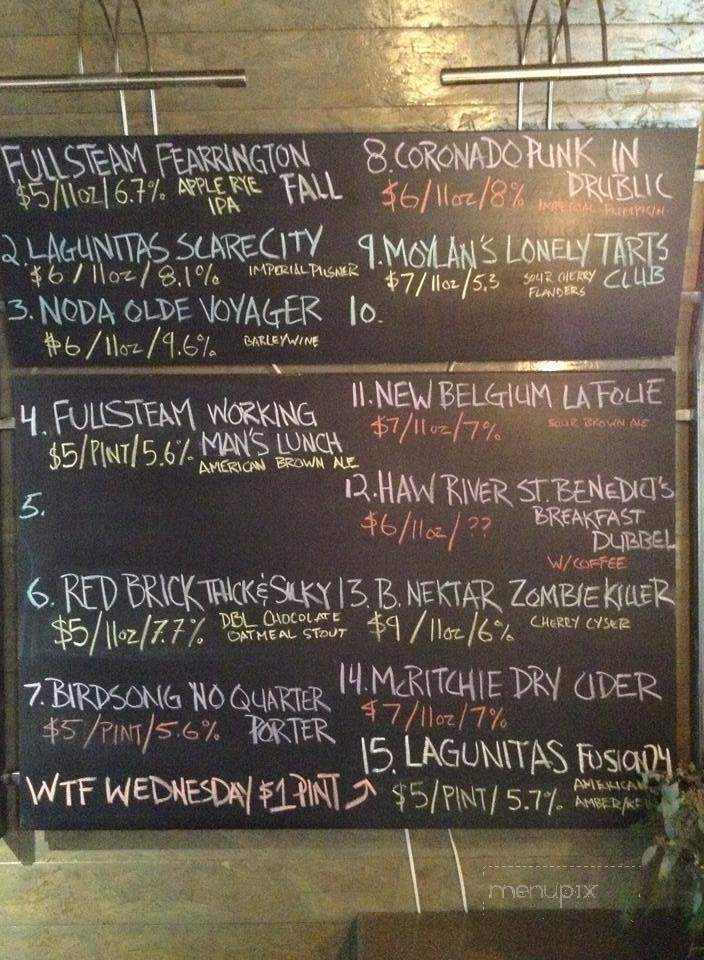 FULLSTEAM FEARRINGTON
FALL
$5/11oz/6.7% APPLE RYE
IPA
2. LAGUNITAS SCARECITY
$6/11oz/8.1% IMPERIAL PILSNER
3. NODA OLDE VOYAGER
$6/11oz/9.6% BARLEYWINE
4. FULLSTEAM WORKING
MAN'S LUNCH
$5/PINT/5.6% AMERICAN BROWN ALE
5.
6. RED BRICK THICK & SILKY
$5/11oz/7.7% DBL CHOCOLATE
OATMEAL STOUT
7. BIRDSONG NO QUARTER
PORTER
$5/PINT/5.6%
WTF WEDNESDAY $1 PINT
8. CORONADO PUNK IN
DRUBLIC
$6/11oz/8% IMPERIAL PUMPKIN
9. MOYLAN'S LONELY TARTS
CLUB
$7/11oz/5.3 SOUR CHERRY
FLANDERS
10.
11. NEW BELGIUM LA FOLIE
$7/11oz/7% SOUR BROWN ALE
12. HAW RIVER ST. BENEDICT'S
BREAKFAST
DUBBEL
$6/11oz/??
W/COFFEE
13. B. NEKTAR ZOMBIE KILLER
$9/11oz/6% CHERRY CYSER
14. McRITCHIE DRY CIDER
$7/11oz/7%
15. LAGUNITAS FUSION 24
$5/PINT/5.7% AMERICAN
AMBER/
menupix